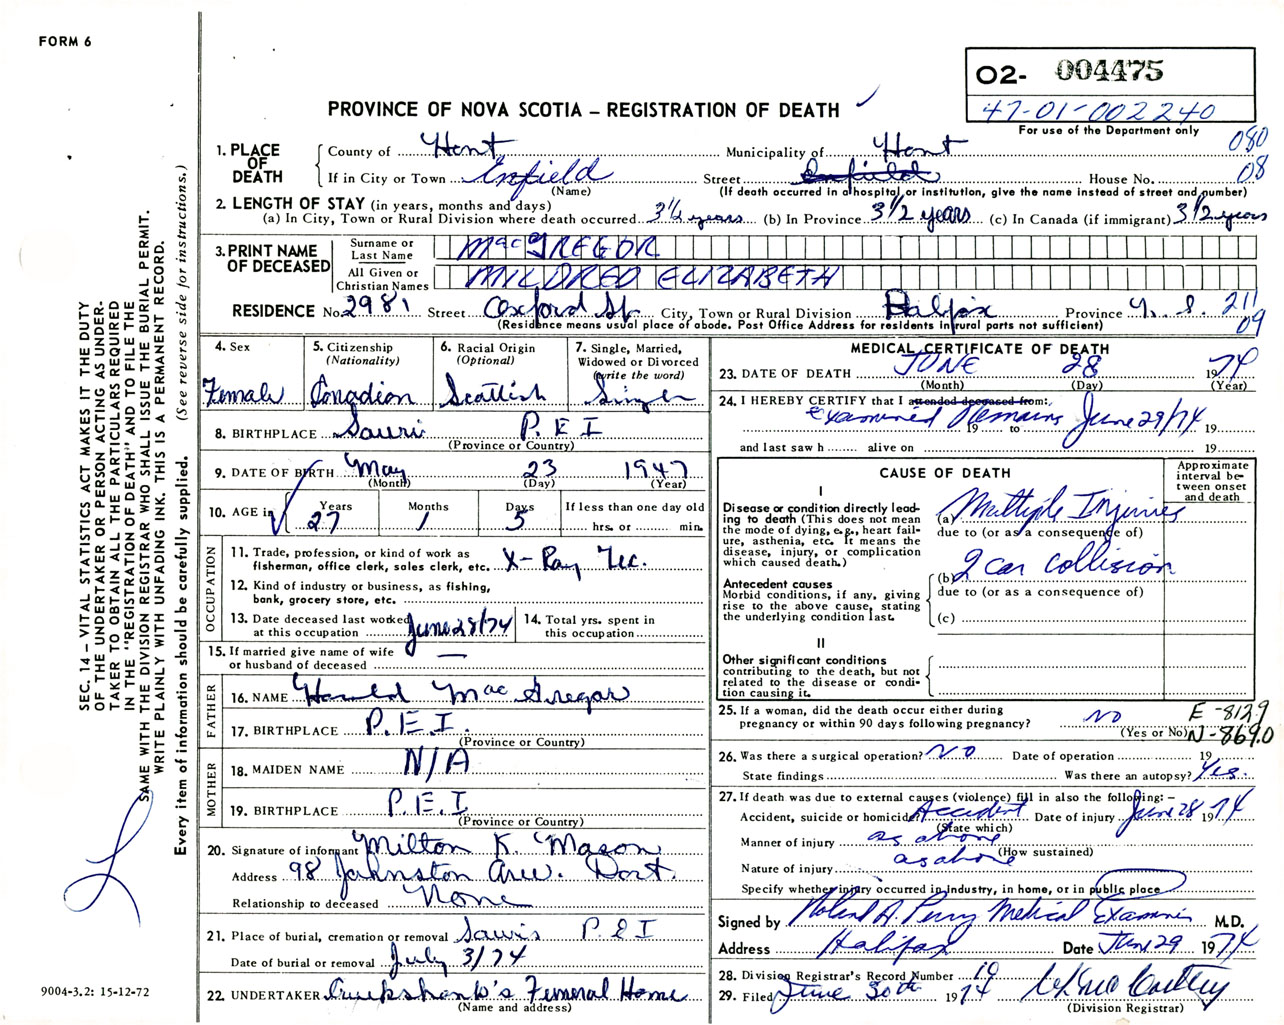 FORM 6
O2- 004475
47-01-002240
For use of the Department only
PROVINCE OF NOVA SCOTIA – REGISTRATION OF DEATH
080
08
1. PLACE OF DEATH
County of Hant Municipality of Hant
If in City or Town Enfield (Name) Street Enfield House No.
(If death occurred in a hospital or institution, give the name instead of street and number)
2. LENGTH OF STAY (in years, months and days)
(a) In City, Town or Rural Division where death occurred 3½ years (b) In Province 3 1/2 years (c) In Canada (if immigrant) 3 1/2 years
3. PRINT NAME OF DECEASED
Surname or Last Name MacGREGOR
All Given or Christian Names MILDRED ELIZABETH
RESIDENCE No. 2981 Street Oxford St. City, Town or Rural Division Halifax Province N.S. 211
09
(Residence means usual place of abode. Post Office Address for residents in rural parts not sufficient)
4. Sex
Female
5. Citizenship (Nationality)
Canadian
6. Racial Origin (Optional)
Scottish
7. Single, Married, Widowed or Divorced (write the word)
Single
8. BIRTHPLACE Souri P.E I
(Province or Country)
9. DATE OF BIRTH May 23 1947
(Month) (Day) (Year)
10. AGE in Years 27 Months 1 Days 5 If less than one day old hrs. or min.
OCCUPATION
11. Trade, profession, or kind of work as fisherman, office clerk, sales clerk, etc. X-Ray Tec.
12. Kind of industry or business, as fishing, bank, grocery store, etc.
13. Date deceased last worked at this occupation June 28/74
14. Total yrs. spent in this occupation
15. If married give name of wife or husband of deceased —
FATHER
16. NAME Harold MacGregor
17. BIRTHPLACE P.E.I.
(Province or Country)
MOTHER
18. MAIDEN NAME N/A
19. BIRTHPLACE P.E.I
(Province or Country)
20. Signature of informant Milton K. Mason
Address 98 Johnston Ave. Dart.
Relationship to deceased None
21. Place of burial, cremation or removal Souris P.E I
Date of burial or removal July 3/74
22. UNDERTAKER Cruikshank's Funeral Home
(Name and address)
MEDICAL CERTIFICATE OF DEATH
23. DATE OF DEATH JUNE 28 1974
(Month) (Day) (Year)
24. I HEREBY CERTIFY that I attended deceased from:
Examined Remains June 29/74
19 to 19
and last saw h alive on 19
CAUSE OF DEATH
Approximate interval between onset and death
I
Disease or condition directly leading to death (This does not mean the mode of dying, e.g., heart failure, asthenia, etc. It means the disease, injury, or complication which caused death.)
(a) Multiple Injuries
due to (or as a consequence of)
Antecedent causes
Morbid conditions, if any, giving rise to the above cause, stating the underlying condition last.
(b) 2 car collision
due to (or as a consequence of)
(c)
II
Other significant conditions contributing to the death, but not related to the disease or condition causing it.
25. If a woman, did the death occur either during pregnancy or within 90 days following pregnancy? NO
(Yes or No)
E -8129
N-869.0
26. Was there a surgical operation? NO Date of operation 19
State findings Was there an autopsy? Yes.
27. If death was due to external causes (violence) fill in also the following: –
Accident, suicide or homicide? Accident Date of injury June 28 1974
(State which)
Manner of injury as above
(How sustained)
Nature of injury as above
Specify whether injury occurred in industry, in home, or in public place
Signed by Roland A. Perry Medical Examiner M.D.
Address Halifax Date June 29 1974
28. Division Registrar's Record Number 10
29. Filed June 30th 1974
(Division Registrar)
SEC. 14 – VITAL STATISTICS ACT MAKES IT THE DUTY
OF THE UNDERTAKER OR PERSON ACTING AS UNDER-
TAKER TO OBTAIN ALL THE PARTICULARS REQUIRED
IN THE "REGISTRATION OF DEATH" AND TO FILE THE
SAME WITH THE DIVISION REGISTRAR WHO SHALL ISSUE THE BURIAL PERMIT.
WRITE PLAINLY WITH UNFADING INK. THIS IS A PERMANENT RECORD.
Every item of information should be carefully supplied. (See reverse side for instructions.)
9004-3.2: 15-12-72